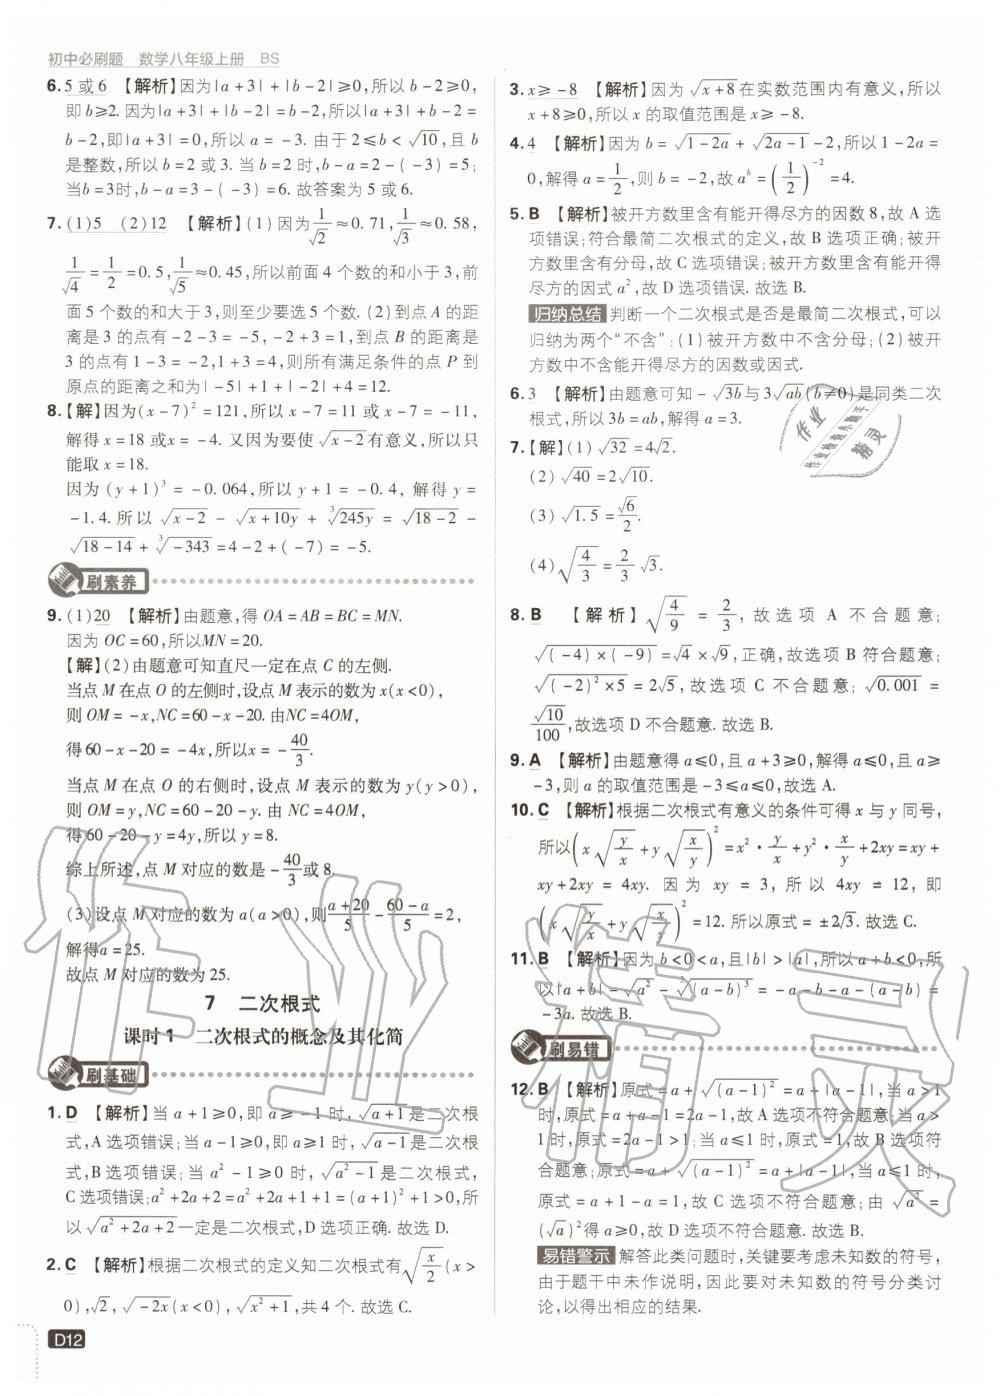 初中必刷题 数学八年级上册 BS
6.5 或 6 【解析】因为|a+3|+|b-2|≥0,所以 b-2≥0,
即 b≥2. 因为|a+3|+|b-2|=b-2,所以|a+3|+b-2=
b-2,即|a+3|=0,所以 a=-3. 由于 2≤b<√10,且 b
是整数,所以 b=2 或 3. 当 b=2 时,b-a=2-(-3)=5;
当b=3时,b-a=3-(-3)=6. 故答案为 5 或 6.
7.(1)5 (2)12 【解析】(1)因为1/√2≈0.71,1/√3≈0.58,
1/√4=1/2=0.5,1/√5≈0.45,所以前面 4 个数的和小于 3,前
面 5 个数的和大于 3,则至少要选 5 个数. (2)到点 A 的距
离是 3 的点有 -2-3=-5,-2+3=1,到点 B 的距离是
3 的点有 1-3=-2,1+3=4,则所有满足条件的点 P 到
原点的距离之和为|-5|+1+|-2|+4=12.
8.【解】因为(x-7)²=121,所以 x-7=11 或 x-7=-11,
解得 x=18 或 x=-4. 又因为要使 √x-2有意义,所以只
能取 x=18.
因为 (y+1)³=-0.064,所以 y+1=-0.4, 解得 y=
-1.4. 所以 √x-2 - √x+10y + ³√245y = √18-2 -
√18-14 + ³√-343=4-2+(-7)=-5.
刷素养
9.(1)20 【解析】由题意,得 OA=AB=BC=MN.
因为 OC=60,所以MN=20.
【解】(2)由题意可知直尺一定在点 C 的左侧.
当点 M 在点 O 的左侧时,设点 M 表示的数为 x(x<0),
则 OM=-x,NC=60-x-20. 由NC=4OM,
得60-x-20=-4x,所以x=-40/3.
当点 M 在点 O 的右侧时,设点 M 表示的数为 y(y>0),
则 OM=y,NC=60-20-y. 由 NC=4OM,
得60-20-y=4y,所以 y=8.
综上所述,点 M 对应的数为-40/3或8.
(3)设点 M 对应的数为 a(a>0),则a+20/5-60-a/5=2,
解得a=25.
故点 M 对应的数为 25.
7 二次根式
课时1 二次根式的概念及其化简
刷基础
1.D 【解析】当 a+1≥0,即 a≥-1 时,√a+1是二次根
式,A 选项错误;当 a-1≥0,即 a≥1 时,√a-1是二次根
式,B 选项错误;当 a²-1≥0 时,√a²-1是二次根式,
C 选项错误;a²+2a+2=a²+2a+1+1=(a+1)²+1>0,所
以√a²+2a+2一定是二次根式,D 选项正确. 故选 D.
2.C 【解析】根据二次根式的定义知二次根式有√x/2(x>
0),√2,√-2x(x<0),√x²+1,共 4 个. 故选C.
D12
3.x≥-8 【解析】因为 √x+8在实数范围内有意义,所以
x+8≥0,所以 x 的取值范围是 x≥-8.
4.4 【解析】因为 b=√1-2a+√2a-1-2,所以 1-2a=
0,解得 a=1/2,则 b=-2,故 aᵇ=(1/2)⁻²=4.
5.B 【解析】被开方数里含有能开得尽方的因数 8,故 A 选
项错误;符合最简二次根式的定义,故 B 选项正确;被开
方数里含有分母,故 C 选项错误;被开方数里含有能开得
尽方的因式 a²,故 D 选项错误. 故选 B.
归纳总结 判断一个二次根式是否是最简二次根式,可以
归纳为两个“不含”:(1)被开方数中不含分母;(2)被开
方数中不含能开得尽方的因数或因式.
6.3 【解析】由题意可知-√3b与3√ab(b≠0)是同类二次
根式,所以 3b=ab,解得 a=3.
7.【解】(1)√32=4√2.
(2)√40=2√10.
(3)√1.5=√6/2.
(4)√4/3=2/3√3.
8.B 【解析】√4/9=2/3,故选项 A 不合题意;
√(-4)×(-9)=√4×√9,正确,故选项 B 符合题意;
√(-2)²×5=2√5,故选项 C 不合题意;√0.001=
√10/100,故选项 D 不合题意. 故选 B.
9.A 【解析】由题意得 a≤0,且 a+3≥0,解得 a≤0,且 a≥
-3,则 a 的取值范围是-3≤a≤0,故选 A.
10.C 【解析】根据二次根式有意义的条件可得 x 与 y 同号,
所以(x√y/x+y√x/y)²=x²·y/x+y²·x/y+2xy=xy+
xy+2xy=4xy. 因为 xy=3,所以 4xy=12,即
(x√y/x+y√x/y)²=12. 所以原式=±2√3. 故选 C.
11.B 【解析】因为 b<0<a,且|b|>|a|,所以 a+b<0,所
以|a+b|-√a²-³√(a-b)³=-a-b-a-(a-b)=
-3a. 故选 B.
刷易错
12.B 【解析】原式=a+√(a-1)²=a+|a-1|,当 a>1
时,原式=a+a-1=2a-1,故 A 选项不符合题意;当 a>
1时,原式=2a-1>1;当 a≤1 时,原式=1,故 B 选项符
合题意;原式=a+√(a-1)²=a+|a-1|,当 a≤1时,
原式=a+1-a=1,故 C 选项不符合题意;由 √a²=
(√a)²得 a≥0,故 D 选项不符合题意. 故选 B.
易错警示 解答此类问题时,关键要考虑未知数的符号,
由于题干中未作说明,因此要对未知数的符号分类讨
论,以得出相应的结果.
作业
精灵
作业精灵